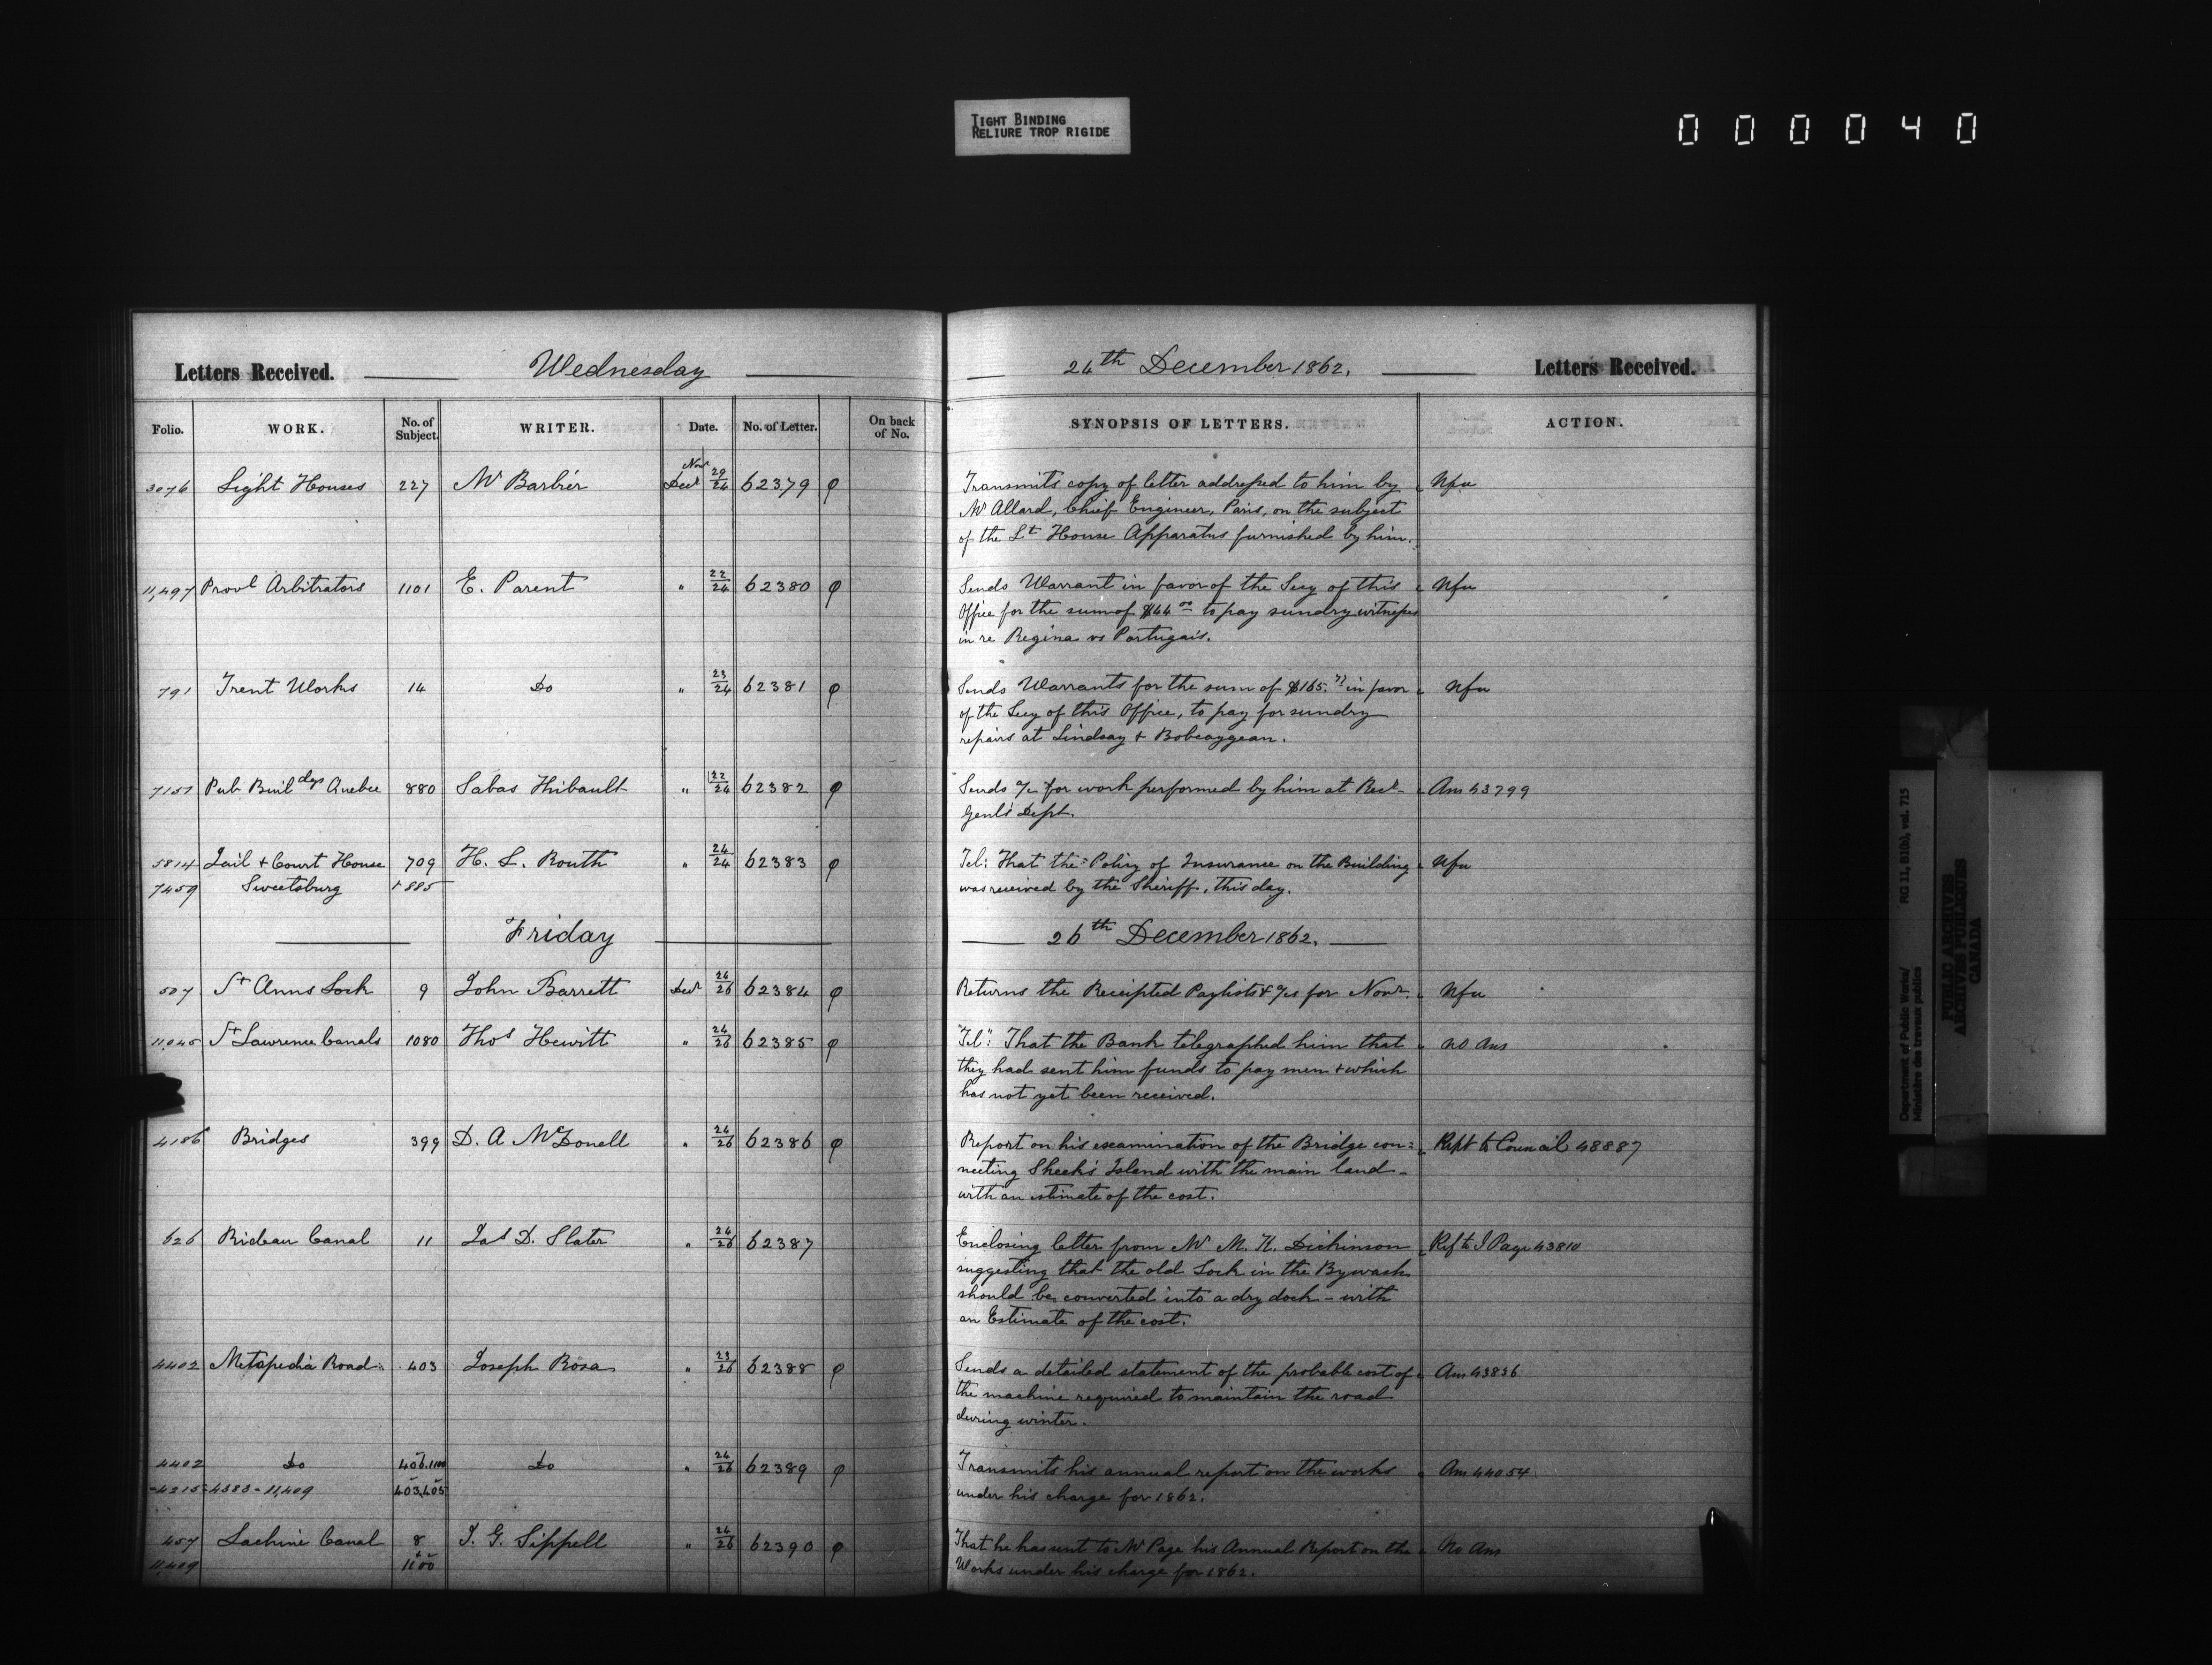 TIGHT BINDING
RELIURE TROP RIGIDE
000040
Letters Received. Wednesday 24th December 1862. Letters Received.
Folio. WORK. No. of Subject. WRITER. Date. No. of Letter. On back of No. SYNOPSIS OF LETTERS. ACTION.
3076 Light Houses 227 Mr Barbier Novr 29 Decr 24 62379 Transmits copy of letter addressed to him by Nfu
Mr Allard, Chief Engineer, Paris, on the subject
of the Lt House Apparatus furnished by him.
11,497 Provl Arbitrators 1101 E. Parent " 22/24 62380 Sends Warrant in favor of the Secy of this Nfu
Office for the sum of $44 00 to pay sundry witnesses
in re Regina vs Portugais.
791 Trent Works 14 Do " 23/24 62381 Sends Warrants for the sum of $165. in favor Nfu
of the Secy of this Office, to pay for sundry
repairs at Lindsay & Bobcaygean.
7151 Pub Buildgs Quebec 880 Sabas Thibault " 22/24 62382 Sends a/c for work performed by him at Recr Ans 43799
Genl's Dept.
5814 Jail & Court House 709 H. L. Routh " 24/24 62383 Tel: That the Policy of Insurance on the Building Nfu
7459 Sweetsburg & 885 was received by the Sheriff, this day.
Friday 26th December 1862.
507 St Anns Lock 9 John Barrett Decr 24/26 62384 Returns the Receipted Paylists & a/cs for Novr. Nfu
11,045 St Lawrence Canals 1080 Thos Hewitt " 24/26 62385 "Tel": That the Bank telegraphed him that no Ans
they had sent him funds to pay men & which
has not yet been received.
4186 Bridges 399 D. A McDonell " 24/26 62386 Report on his examination of the Bridge con= Rept to Council 48887
necting Sheek's Island with the main land -
with an estimate of the cost.
626 Rideau Canal 11 Jas D. Slater " 24/26 62387 Enclosing letter from Mr M. K. Dickinson Ref to J Page 43810
suggesting that the old Lock in the Bywash
should be converted into a dry dock - with
an Estimate of the cost.
4402 Metapedia Road 403 Joseph Rosa " 23/26 62388 Sends a detailed statement of the probable cost of Ans 43836
the machine required to maintain the road
during winter.
4402 Do 406.1100 Do " 24/26 62389 Transmits his annual report on the works Ans 44054
4215-4383-11,409 403,405 under his charge for 1862.
457 Lachine Canal 8 J. G. Sippell " 24/26 62390 That he has sent to Mr Page his Annual Report on the No Ans
11,409 1100 Works under his charge for 1862.
Department of Public Works/ RG 11, B1(b), vol. 715
Ministère des travaux publics
PUBLIC ARCHIVES
ARCHIVES PUBLIQUES
CANADA